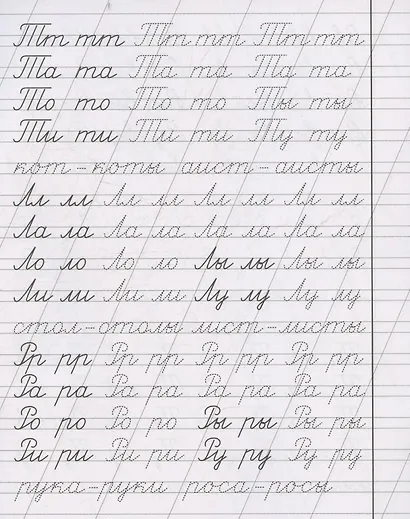 Тт тт Тт тт Тт тт
Та та Та та Та та
То то То то Ты ты
Ти ти Ти ти Ту ту
кот - коты аист - аисты
Лл лл Лл лл Лл лл Лл лл
Ла ла Ла ла Ла ла Ла ла
Ло ло Ло ло Лы лы Лы лы
Ли ли Ли ли Лу лу Лу лу
стол - столы лист - листы
Рр рр Рр рр Рр рр Рр рр
Ра ра Ра ра Ра ра Ра ра
Ро ро Ро ро Ры ры Ры ры
Ри ри Ри ри Ру ру Ру ру
рука - руки роса - росы